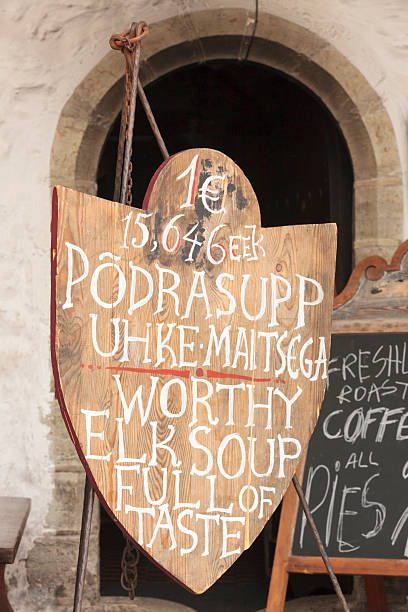 1€
15,646 EEK
PÕDRASUPP
UHKE·MAITSEGA
WORTHY
ELK SOUP
FULL OF
TASTE
FRESHL
ROAST
COFFE
ALL
PIES